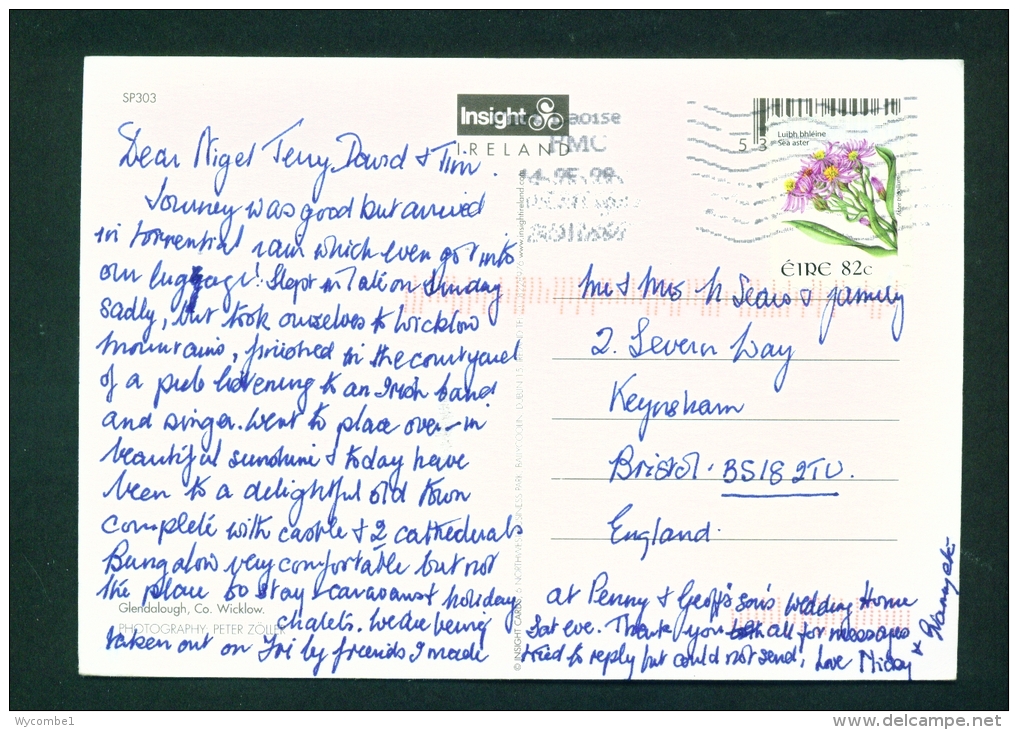 SP303
Insight
IRELAND
Dear Nigel Terry David & Tim.
Journey was good but arrived
in torrential rain which even got into
our luggage! Slept in on Sunday
sadly, but took ourselves to Wicklow
Mountains, finished in the courtyard
of a pub listening to an Irish band
and singer. Went to place over-in
beautiful sunshine & today have
been to a delightful old town
complete with castle & 2 cathedrals
Bungalow very comfortable but not
the place to stay & caravans & holiday
chalets. We are being
taken out on Fri by friends I made
Glendalough, Co. Wicklow.
PHOTOGRAPHY: PETER ZÖLLER
www.insightireland.com
© INSIGHT CARDS, 6 NORTHWEST BUSINESS PARK, BALLYCOOLIN, DUBLIN 15
PMC
53
Luibh bhléine
Sea aster
ÉIRE 82c
Mr & Mrs N Sears & family
2. Severn Way
Keynsham
Bristol. BS18 2TU.
England.
at Penny & Geoff's son's wedding Home
Sat eve. Thank you all for messages
tried to reply but could not send, Love Nicky
&
Wycombe1
www.delcampe.net